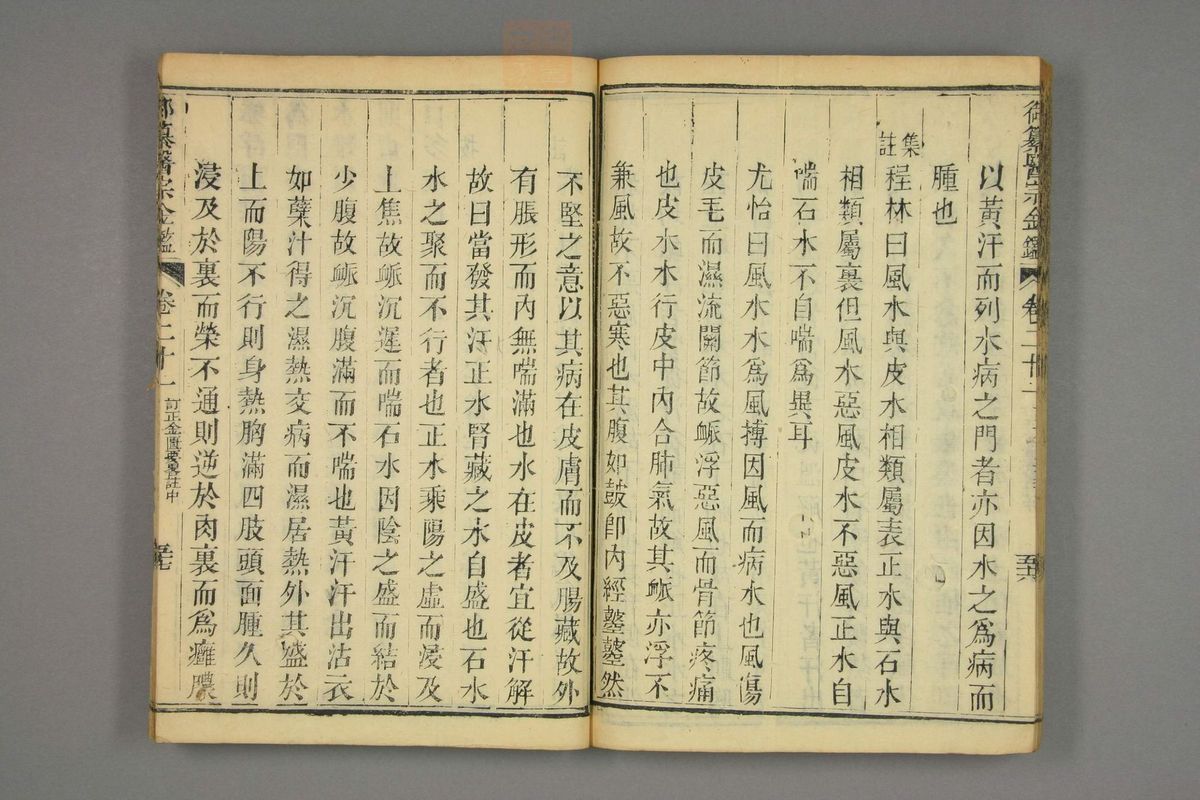 御纂醫宗金鑑
卷二十一
五六
以黃汗而列水病之門者亦因水之爲病而
腫也
集註
程林曰風水與皮水相類屬表正水與石水
相類屬裏但風水惡風皮水不惡風正水自
喘石水不自喘爲異耳
尤怡曰風水水爲風搏因風而病水也風傷
皮毛而濕流關節故衇浮惡風而骨節疼痛
也皮水水行皮中內合肺氣故其衇亦浮不
兼風故不惡寒也其腹如鼓卽內經𥀻𥀻然
不堅之意以其病在皮膚而不及腸藏故外
有脹形而內無喘滿也水在皮者宜從汗解
故曰當發其汗正水腎藏之水自盛也石水
水之聚而不行者也正水乘陽之虛而浸及
上焦故衇沉遲而喘石水因陰之盛而結於
少腹故衇沉腹滿而不喘也黃汗汗出沾衣
如蘗汁得之濕熱交病而濕居熱外其盛於
上而陽不行則身熱胸滿四肢頭面腫久則
浸及於裏而榮不通則逆於肉裏而爲癰膿
御纂醫宗金鑑
卷二十一
訂正金匱要畧註中
五七